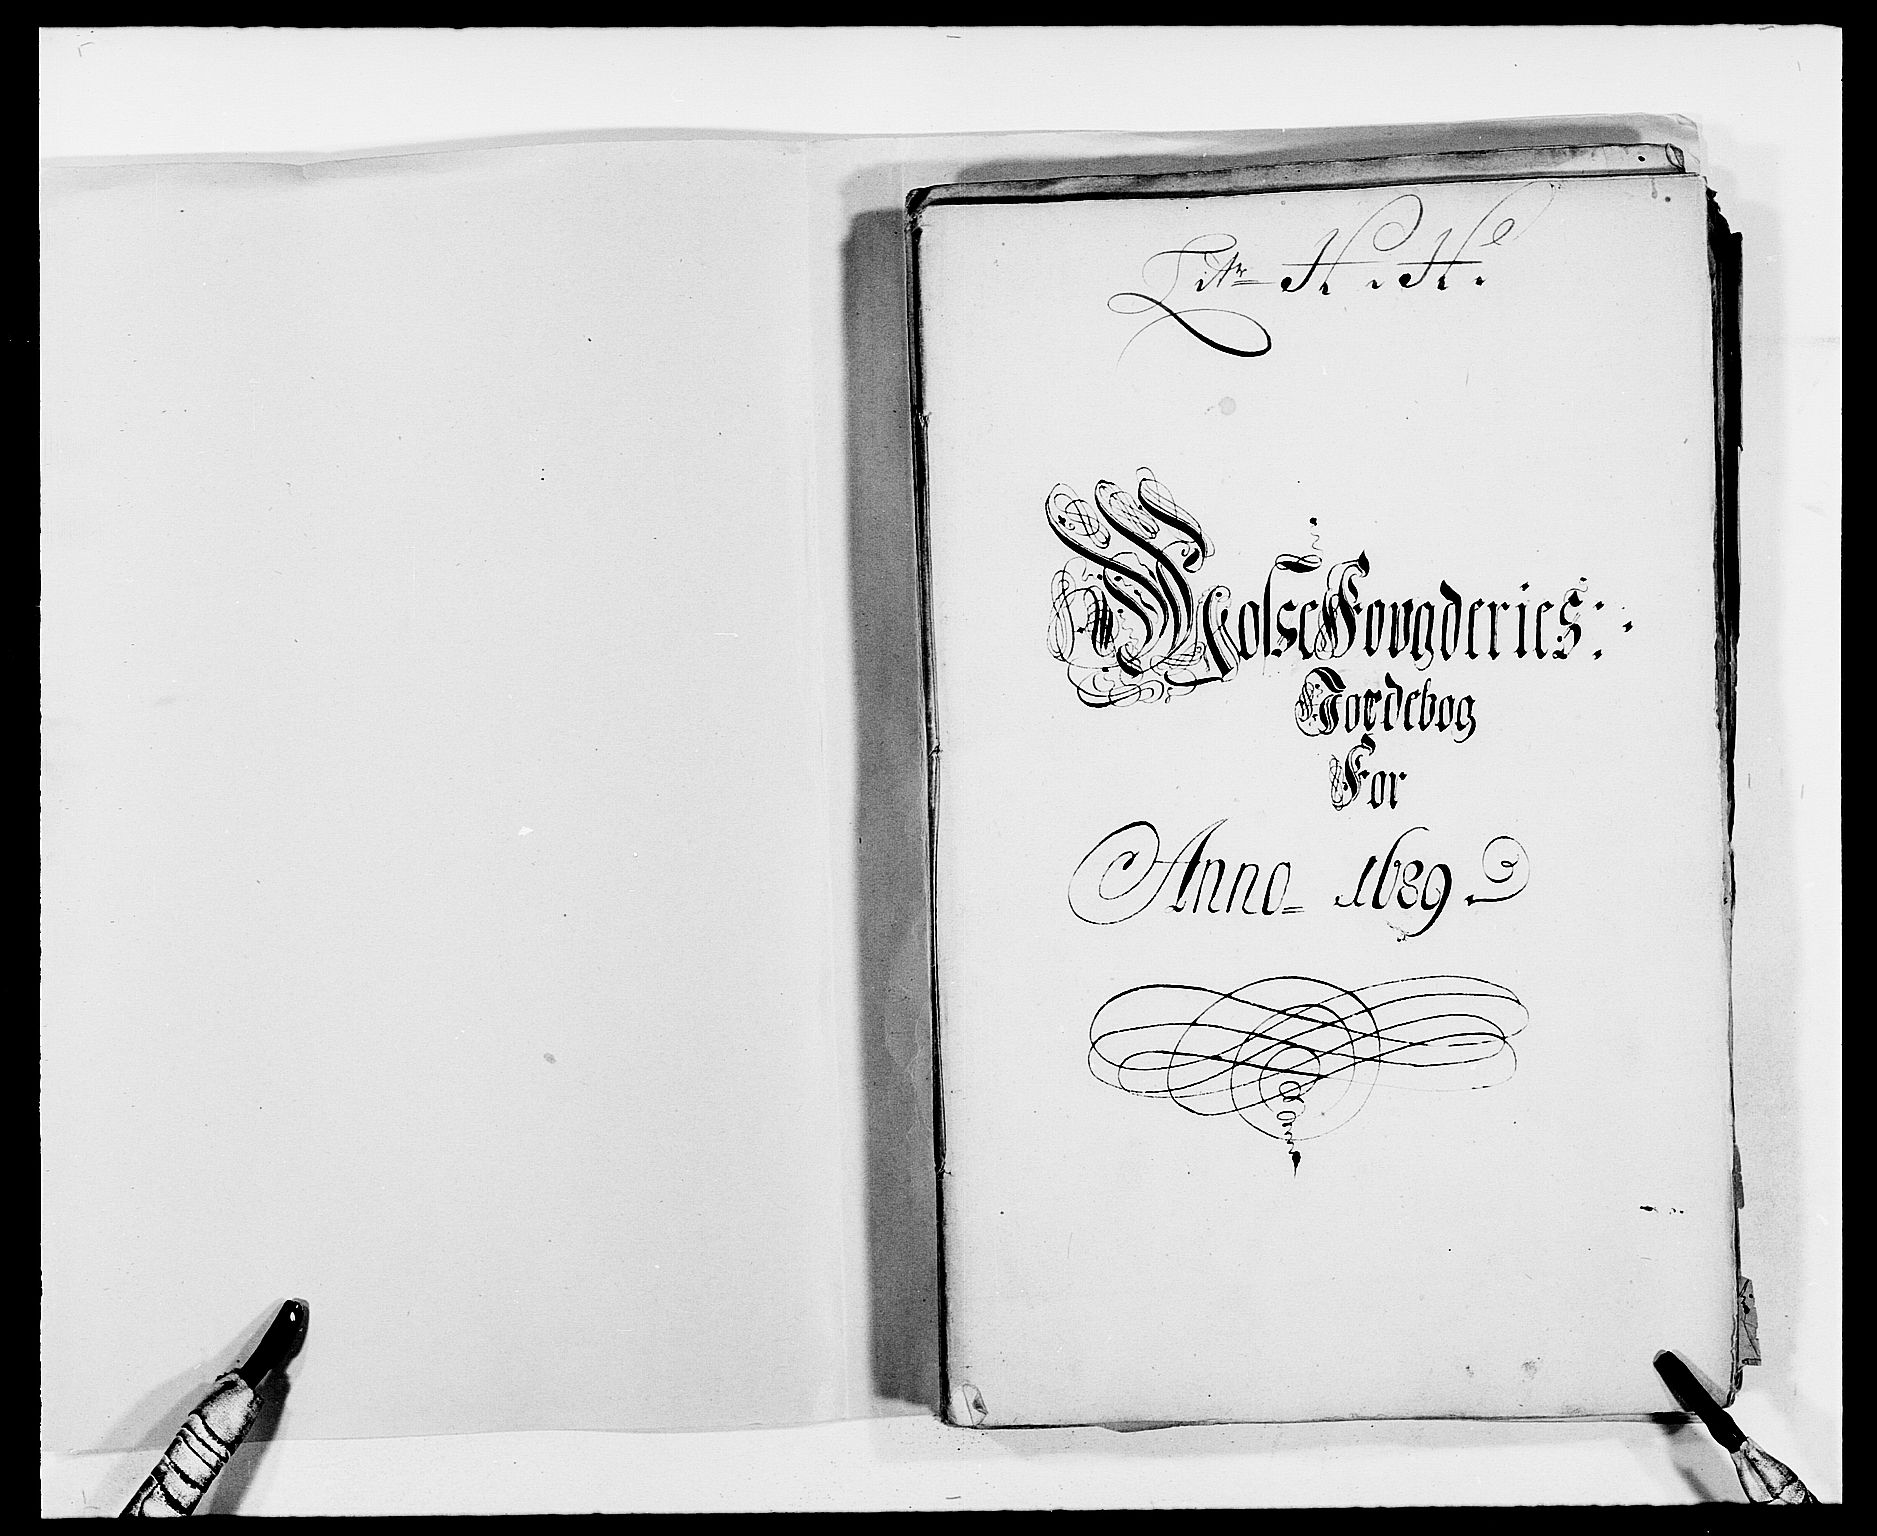 Litr H. H.
Mosse Fougderies:
Jordebog
For
Anno 1689